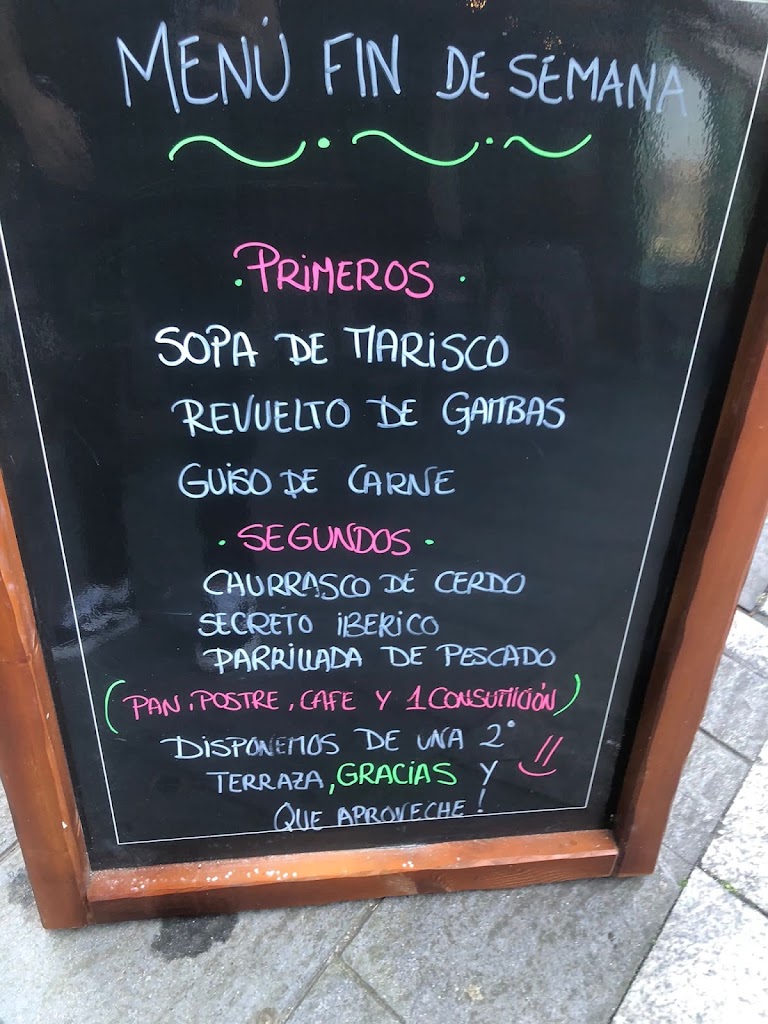 MENÚ FIN DE SEMANA
. PRIMEROS .
SOPA DE MARISCO
REVUELTO DE GAMBAS
GUISO DE CARNE
. SEGUNDOS .
CHURRASCO DE CERDO
SECRETO IBERICO
PARRILLADA DE PESCADO
(PAN, POSTRE, CAFE Y 1 CONSUMICIÓN)
DISPONEMOS DE UNA 2º
TERRAZA, GRACIAS Y
QUE APROVECHE!